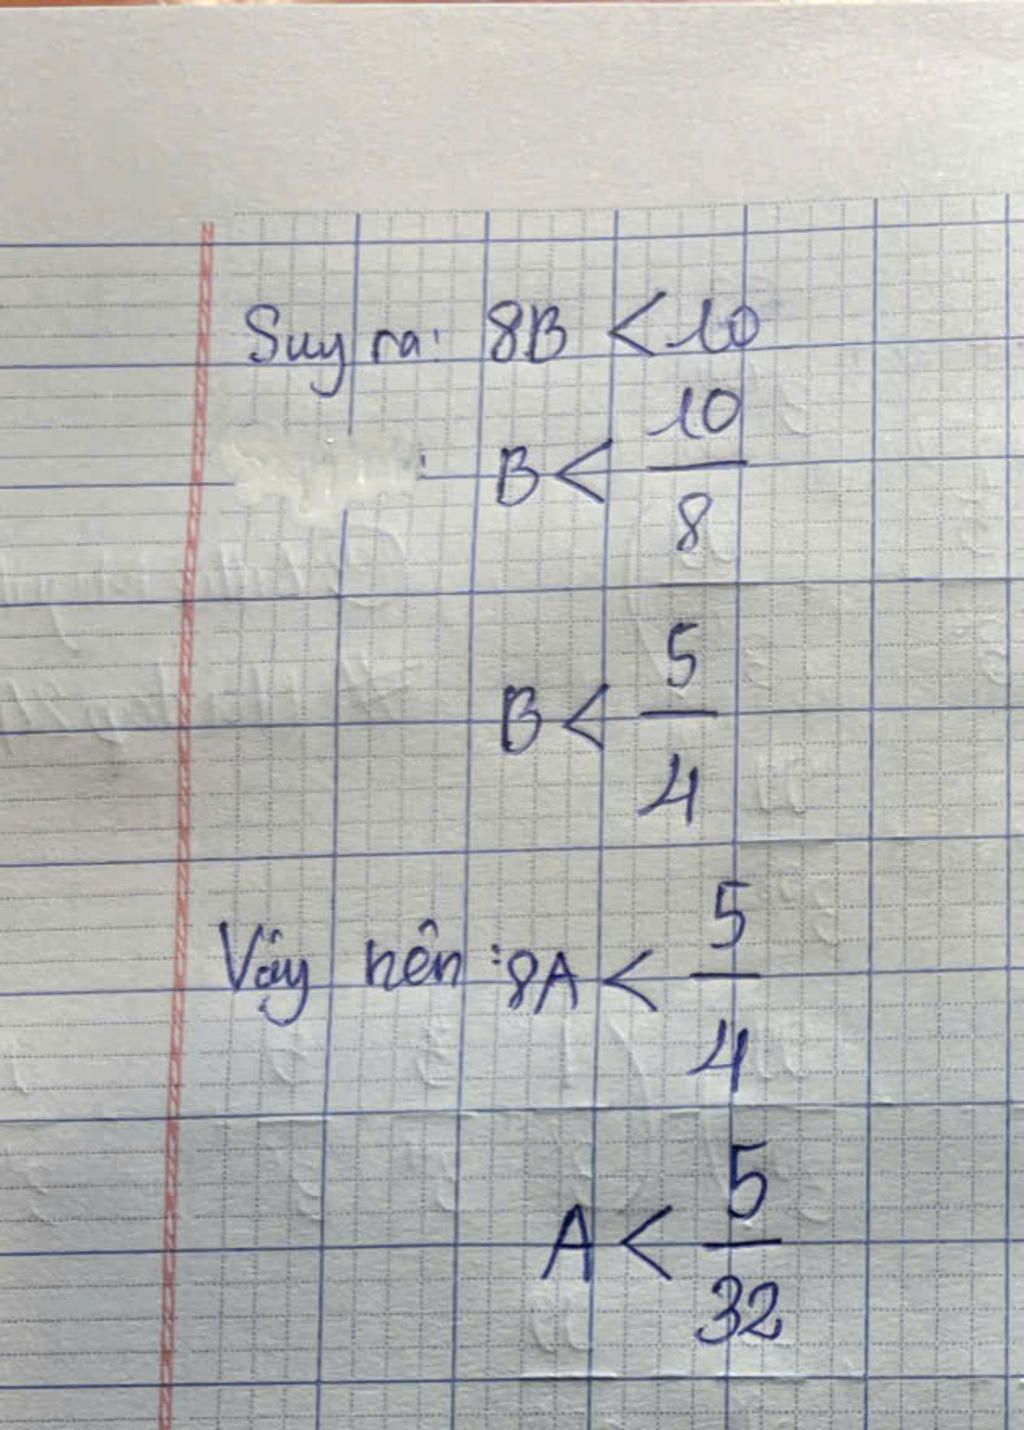 Suy ra: 8B < 10
B < 10/8
B < 5/4
Vậy nên: 8A < 5/4
A < 5/32